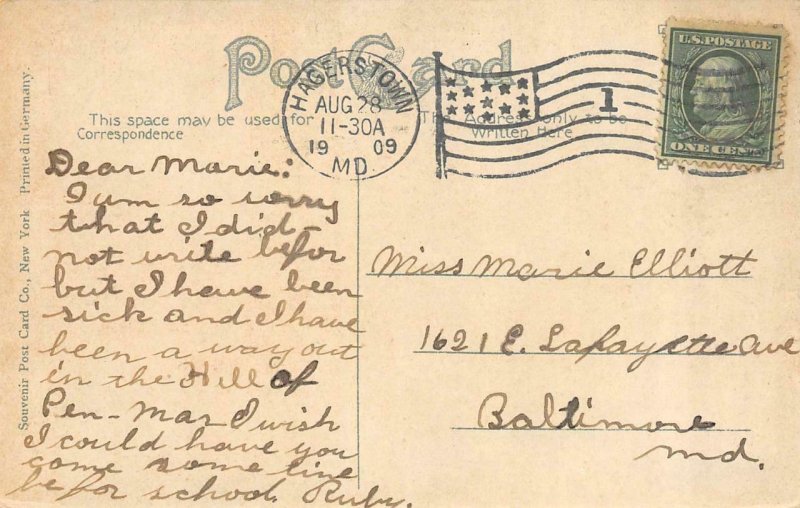 Post Card
HAGERSTOWN
AUG 28
11-30A
1909
MD.
1
U.S. POSTAGE
ONE CENT
This space may be used for
Correspondence
The Address only to be
Written Here
Souvenir Post Card Co., New York Printed in Germany.
Dear Marie:
I am so sorry
that I did-
not write befor
but I have been
sick and I have
been a way out
in the Hill of
Pen-Mar I wish
I could have you
come some time
befor school. Ruby.
Miss Marie Elliott
1621 E. Lafayette Ave
Baltimore
Md.